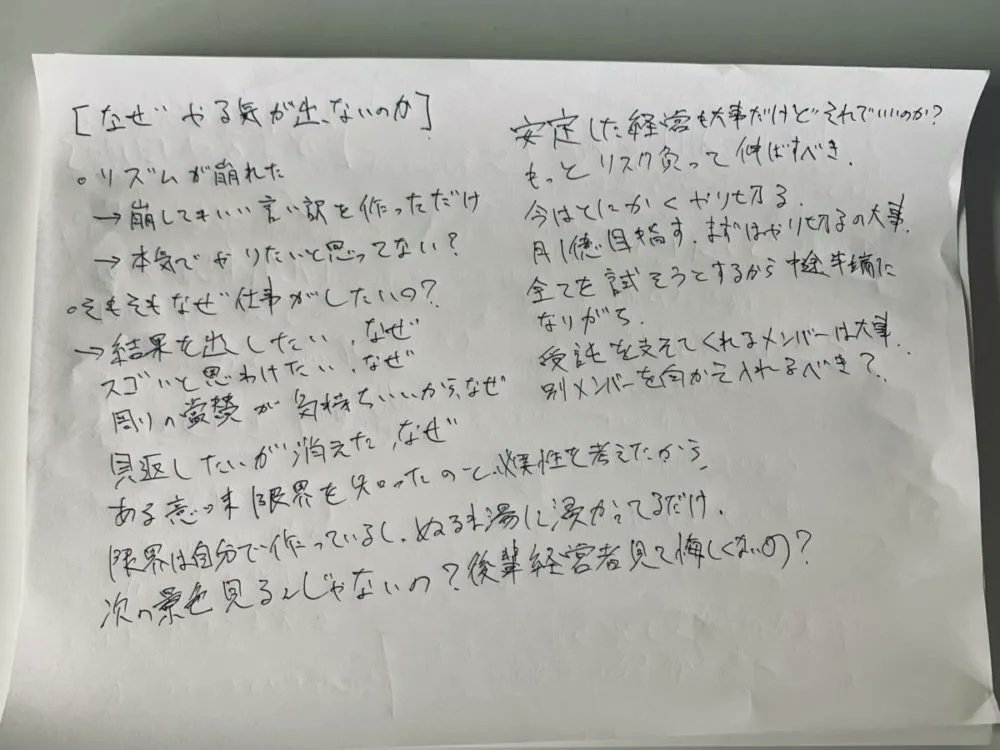 [なぜ やる気が出ないのか]
○リズムが崩れた
→崩してもいい言い訳を作っただけ
→本気でやりたいと思ってない?
○そもそもなぜ仕事がしたいの?
→結果を出したい、なぜ
スゴいと思われたい、なぜ
周りの賞賛が気持ちいいから、なぜ
見返したいが消えた、なぜ
ある意味限界を知ったのと、必要性を考えたから
限界は自分で作っているし、ぬるま湯に浸かってるだけ.
次の景色見るんじゃないの?後輩経営者見て悔しくないの?
安定した経営も大事だけどそれでいいのか?
もっとリスク負って伸ばすべき.
今はとにかくやり切る.
月1億目指す.まずはやり切るの大事.
全てを試そうとするから中途半端に
なりがち.
受託を支えてくれるメンバーは大事.
別メンバーを向かえ入れるべき?